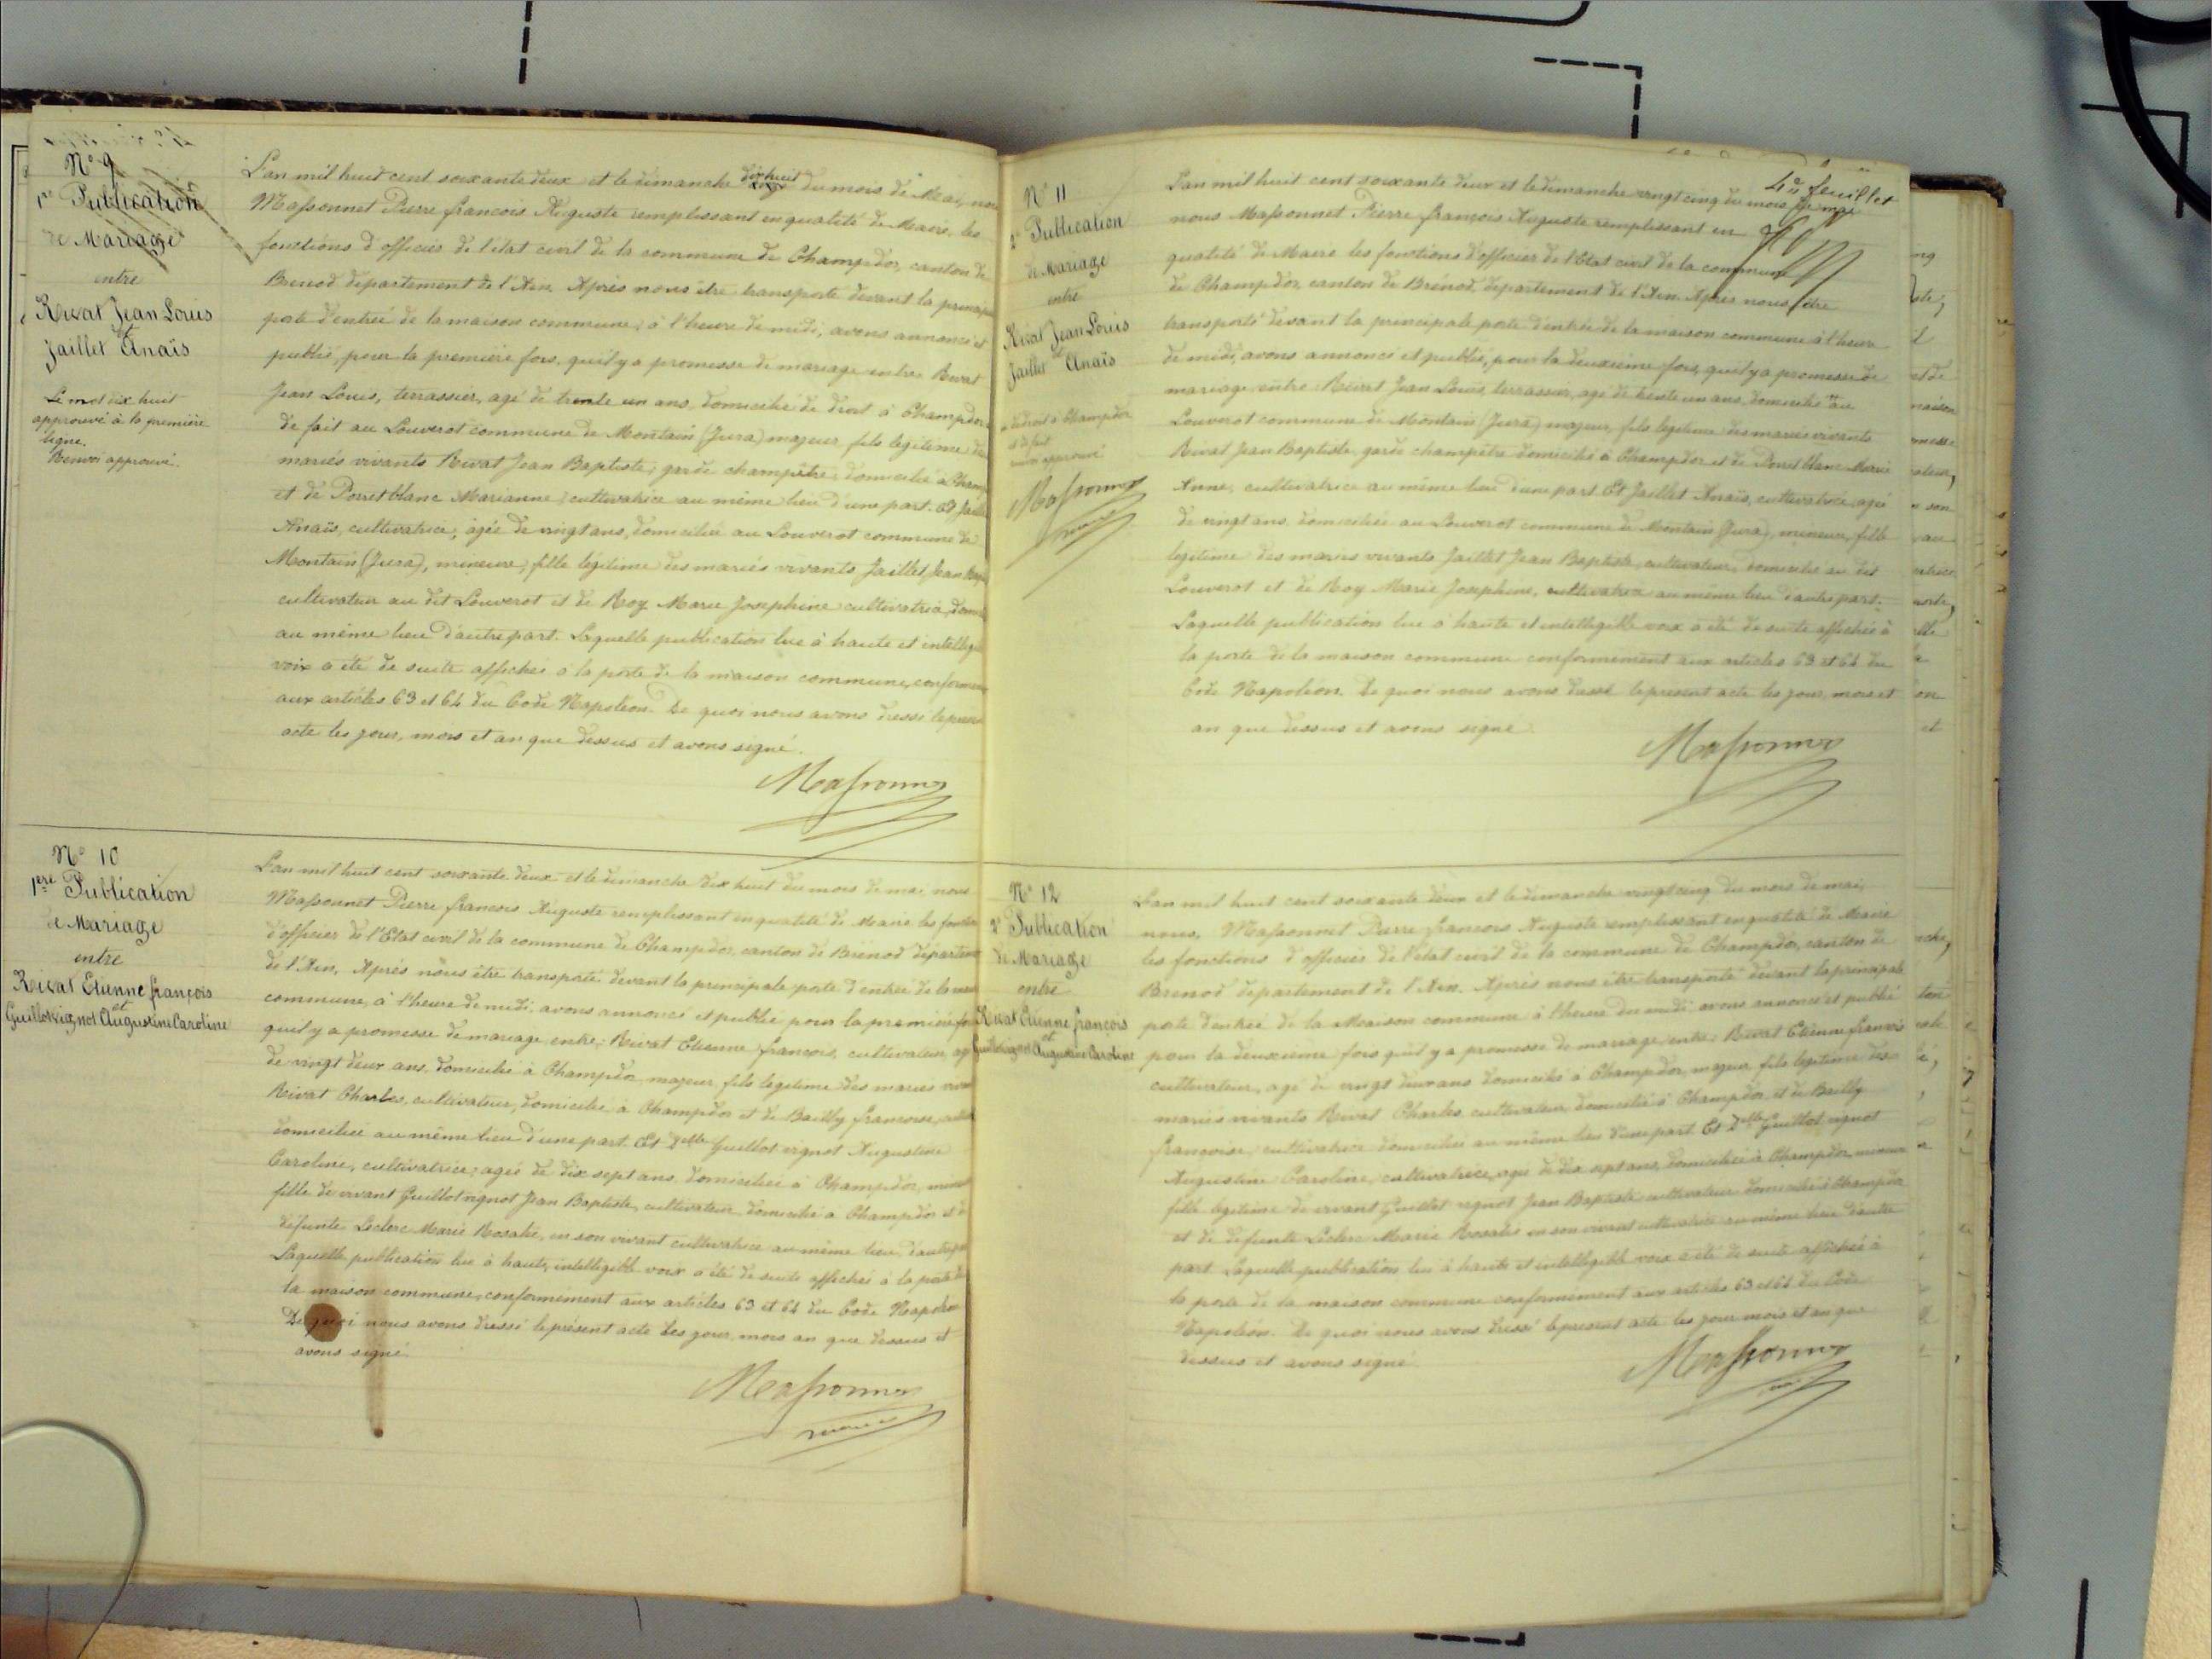 N° 9
1re Publication
de Mariage
entre
Rivat Jean Louis
et
Jaillet Anaïs
Le mot dix huit
approuvé à la première
ligne.
Renvoi approuvé.
L'an mil huit cent soixante deux et le dimanche dix huit du mois de Mai, nous
Massonnet Pierre françois Auguste remplissant en qualité de Maire, les
fonctions d'officier de l'état civil de la commune de Champdor, canton de
Brenod département de l'Ain. Après nous être transporté devant la principale
porte d'entrée de la maison commune, à l'heure de midi, avons annoncé et
publié, pour la première fois, qu'il y a promesse de mariage entre Rivat
Jean Louis, terrassier, agé de trente un ans, domicilié de droit à Champdor
de fait au Louverot commune de Montain (Jura) majeur, fils légitime des
mariés vivants Rivat Jean Baptiste, garde champêtre, domicilié à Champ
et de Porret blanc Marianne, cultivatrice au même lieu d'une part. Et Jaillet
Anaïs, cultivatrice, agée de vingt ans, domiciliée au Louverot commune de
Montain (Jura), mineure, fille légitime des mariés vivants Jaillet Jean
cultivateur au dit Louverot et de Roy Marie Josephine cultivatrice,
au même lieu d'autre part. Laquelle publication lue à haute et
voix a été de suite affichée à la porte de la maison commune,
aux articles 63 et 64 du Code Napoléon. De quoi nous avons dressé le
acte les jour, mois et an que dessus et avons signé.
Massonnet
N° 10
1ère Publication
de Mariage
entre
Rivat Etienne françois
et
Guillot vignot Augustine Caroline
L'an mil huit cent soixante deux et le dimanche dix huit du mois de mai nous
Massonnet Pierre françois Auguste remplissant en qualité de Maire les
d'officier de l'Etat civil de la commune de Champdor, canton de Brénod
de l'Ain. Après nous être transporté devant la principale porte d'entrée de la
commune, à l'heure de midi, avons annoncé et publié pour la première fois
qu'il y a promesse de mariage entre; Rivat Etienne françois, cultivateur, agé
de vingt deux ans, domicilié à Champdor, majeur, fils légitime des mariés
Rivat Charles, cultivateur, domicilié à Champdor et de Bailly françoise,
domiciliée au même lieu d'une part. Et Delle Guillot vignot Augustine
Caroline, cultivatrice, agée de dix sept ans, domiciliée à Champdor,
fille de vivant Guillot vignot Jean Baptiste, cultivateur domicilié à Champdor et
défunte Leclerc Marie Rosalie, en son vivant cultivatrice au même lieu,
Laquelle publication lue à haute, intelligible voix a été de suite affichée à la porte de
la maison commune, conformément aux articles 63 et 64 du Code Napoléon
De quoi nous avons dressé le présent acte les jour, mois an que dessus et
avons signé.
Massonnet
maire
4e feuillet
N° 11
2e Publication
de Mariage
entre
Rivat Jean Louis
et
Jaillet Anaïs
de droit à Champdor
et de fait
renvoi approuvé
Massonnet
maire
L'an mil huit cent soixante deux et le dimanche vingt cinq du mois de mai
nous Massonnet Pierre françois Auguste remplissant en
qualité de Maire les fonctions d'officier de l'Etat civil de la commune
de Champdor, canton de Brénod, département de l'Ain. Après nous être
transporté devant la principale porte d'entrée de la maison commune à l'heure
de midi, avons annoncé et publié, pour la deuxième fois, qu'il y a promesse de
mariage entre: Rivat Jean Louis, terrassier, agé de trente un ans, domicilié au
Louverot commune de Montain (Jura) majeur, fils légitime des mariés vivants
Rivat Jean Baptiste garde champêtre domicilié à Champdor et de Porret blanc Marie
Anne, cultivatrice au même lieu d'une part. Et Jaillet Anaïs, cultivatrice, agée
de vingt ans, domiciliée au Louverot commune de Montain (Jura), mineure, fille
légitime des mariés vivants Jaillet Jean Baptiste, cultivateur, domicilié au dit
Louverot et de Roy Marie Josephine, cultivatrice au même lieu d'autre part.
Laquelle publication lue à haute et intelligible voix a été de suite affichée à
la porte de la maison commune conformément aux articles 63 et 64 du
Code Napoléon. De quoi nous avons dressé le présent acte les jour, mois et
an que dessus et avons signé.
Massonnet
N° 12
2e Publication
de Mariage
entre
Rivat Etienne françois
et
Guillot vignot Augustine Caroline
L'an mil huit cent soixante deux et le dimanche vingt cinq du mois de mai,
nous, Massonnet Pierre françois Auguste remplissant en qualité de Maire
les fonctions d'officier de l'état civil de la commune de Champdor, canton de
Brenod département de l'Ain. Après nous être transporté devant la principale
porte d'entrée de la Maison commune à l'heure du midi avons annoncé et publié
pour la deuxième fois qu'il y a promesse de mariage entre: Rivat Etienne françois
cultivateur, agé de vingt deux ans domicilié à Champdor, majeur fils légitime des
mariés vivants Rivat Charles, cultivateur domicilié à Champdor, et de Bailly
françoise, cultivatrice domiciliée au même lieu d'une part. Et Delle Guillot vignot
Augustine Caroline, cultivatrice, agée de dix sept ans, domiciliée à Champdor, mineure
fille légitime de vivant Guillot vignot Jean Baptiste cultivateur domicilié à Champdor
et de défunte Leclerc Marie Rosalie en son vivant cultivatrice au même lieu d'autre
part. Laquelle publication lue à haute et intelligible voix a été de suite affichée à
la porte de la maison commune conformément aux articles 63 et 64 du Code
Napoléon. De quoi nous avons dressé le présent acte les jour mois et an que
dessus et avons signé
Massonnet